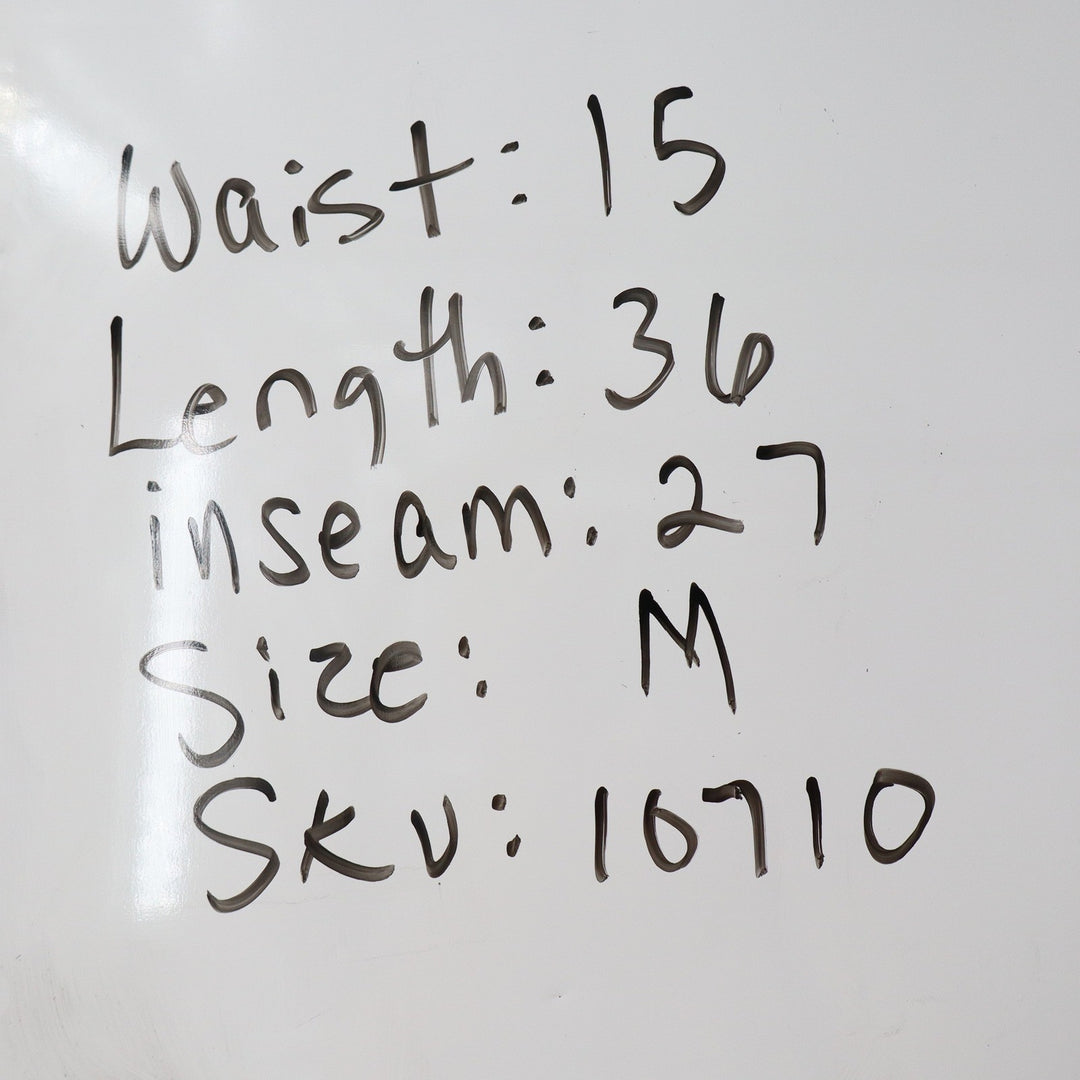 Waist: 15
Length: 36
inseam: 27
Size: M
SKU: 16710